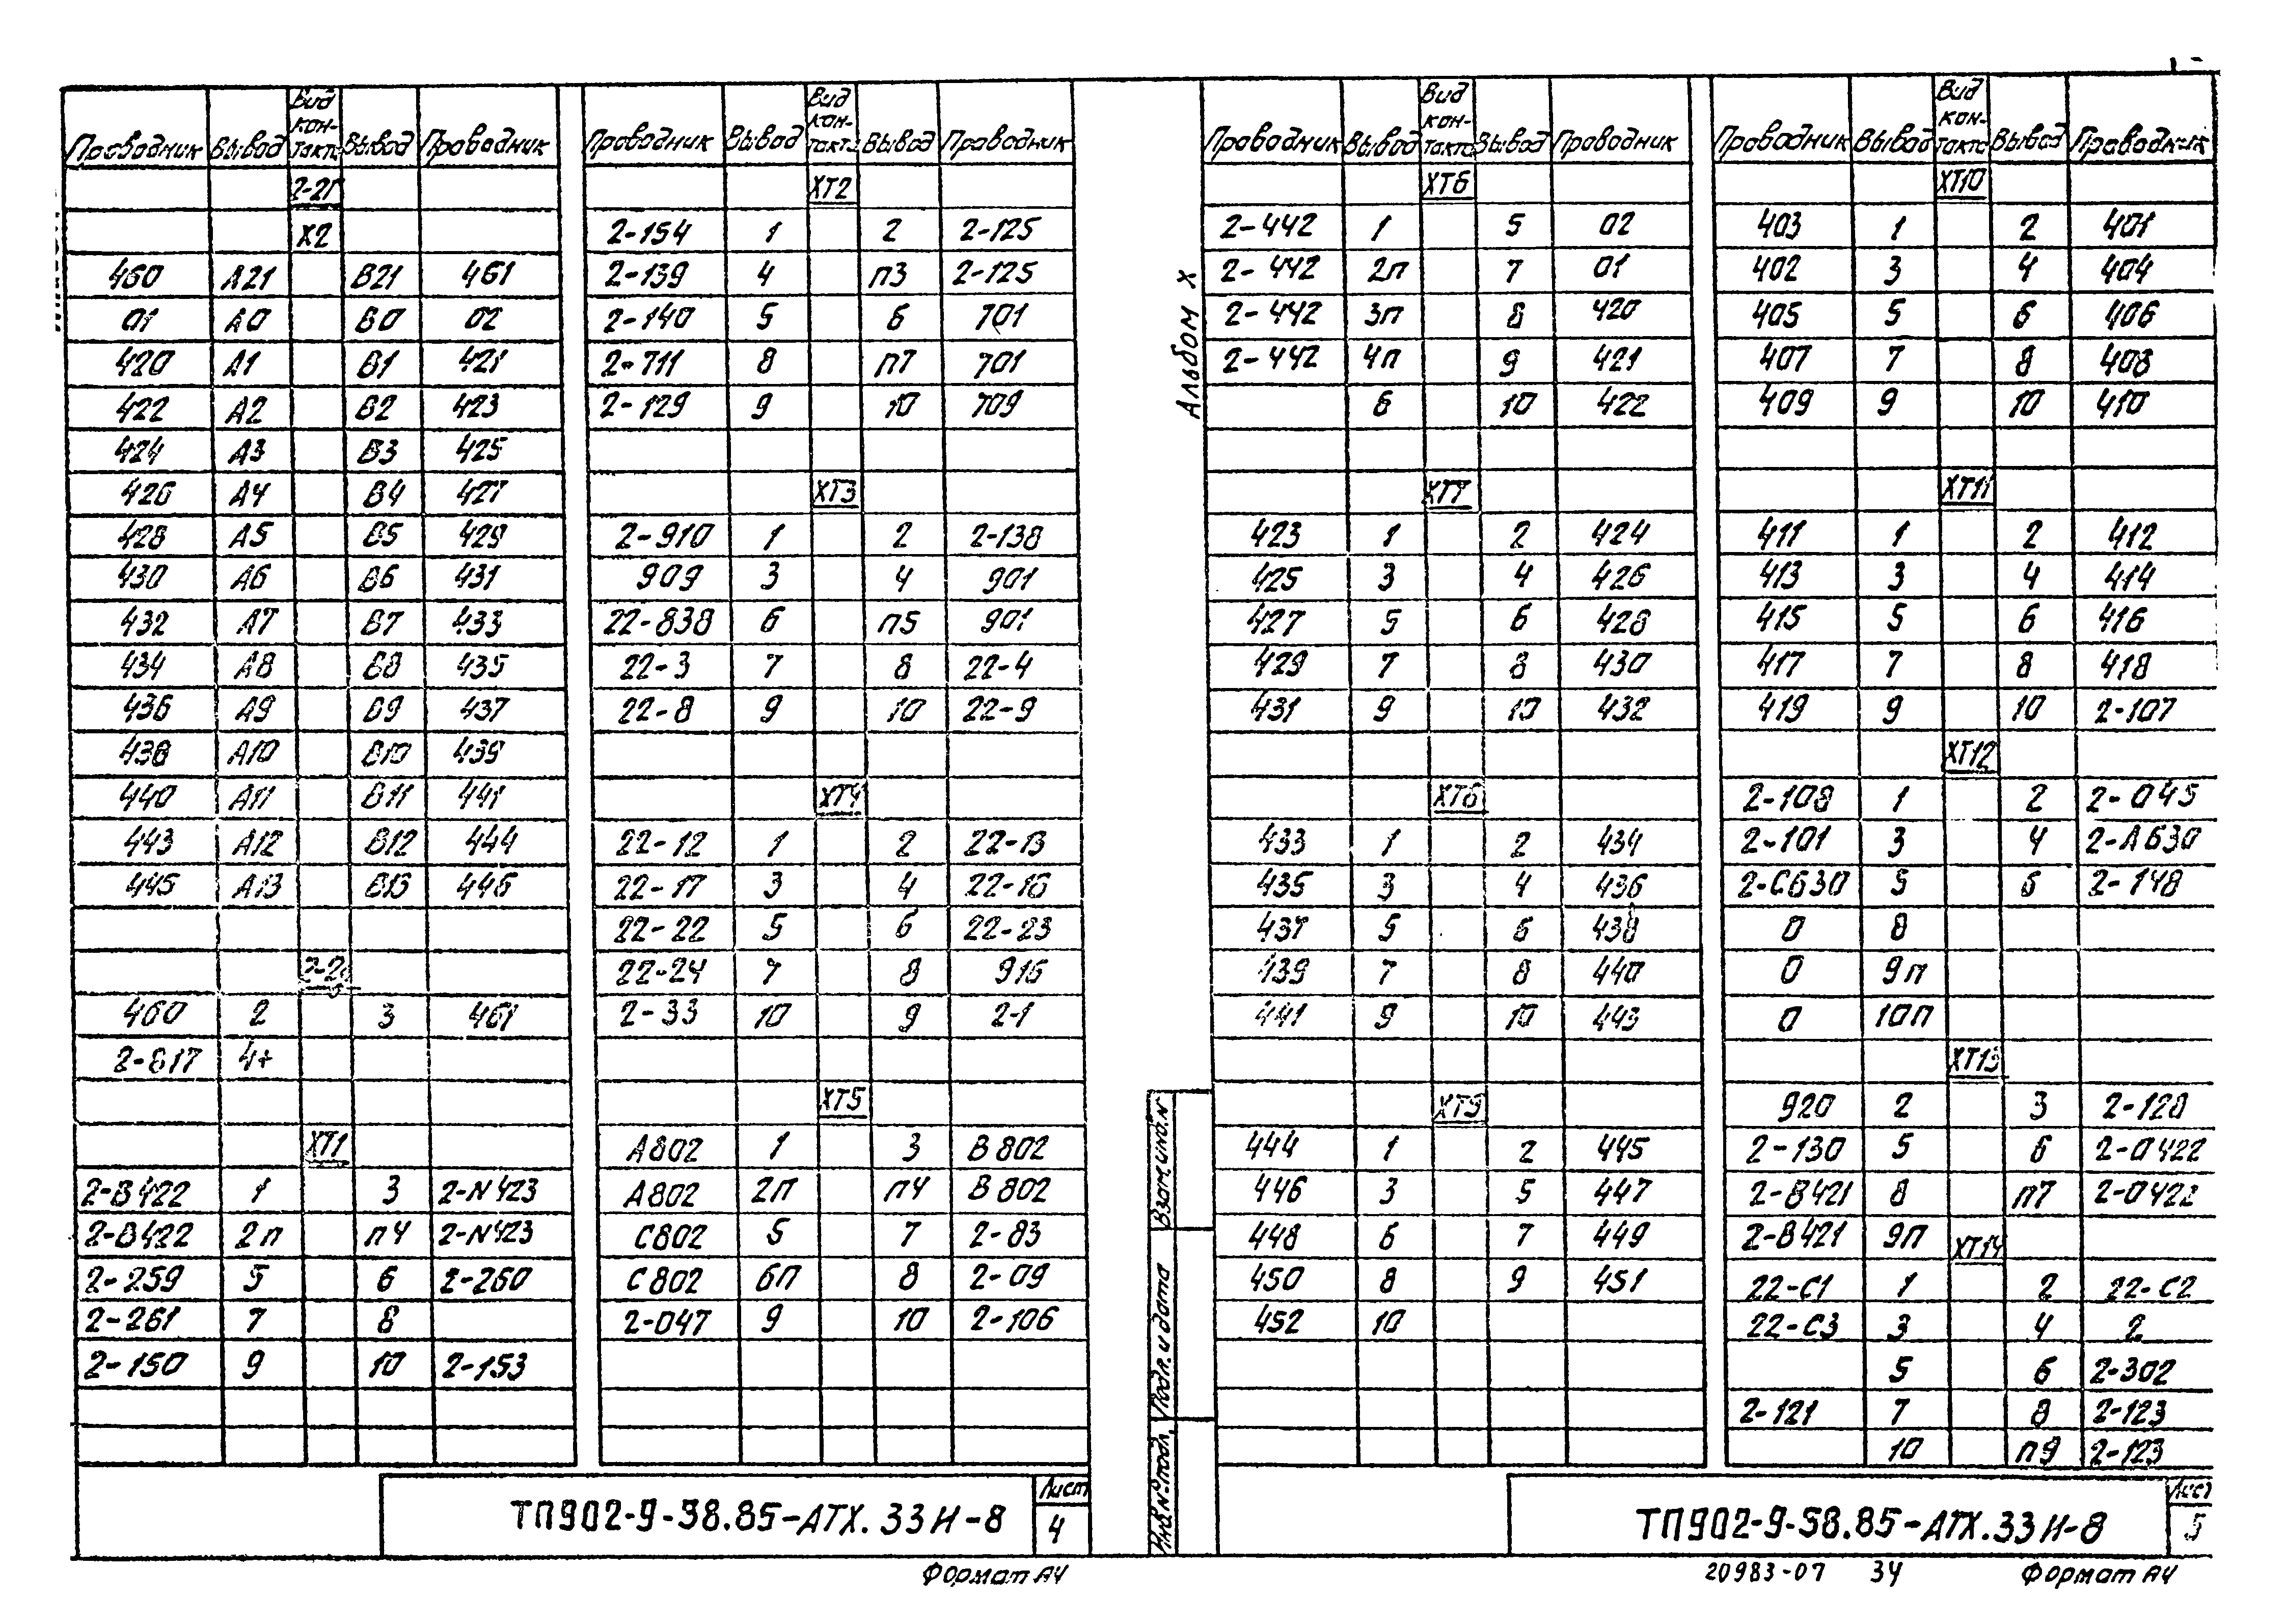 Проводник Вывод Вид контакта Вывод Проводник
2-2Г
X2
460 A21 B21 461
01 A0 B0 02
420 A1 B1 421
422 A2 B2 423
424 A3 B3 425
426 A4 B4 427
428 A5 B5 429
430 A6 B6 431
432 A7 B7 433
434 A8 B8 435
436 A9 B9 437
438 A10 B10 439
440 A11 B11 441
443 A12 B12 444
445 A13 B13 446
460 2 3 461
2-817 4+
XT1
2-B422 1 3 2-N423
2-B422 2п п4 2-N423
2-259 5 6 2-260
2-261 7 8
2-150 9 10 2-153
Проводник Вывод Вид контакта Вывод Проводник
XT2
2-154 1 2 2-125
2-139 4 п3 2-125
2-140 5 6 701
2-711 8 п7 701
2-129 9 10 709
XT3
2-910 1 2 2-138
909 3 4 901
22-838 6 п5 901
22-3 7 8 22-4
22-8 9 10 22-9
XT4
22-12 1 2 22-13
22-17 3 4 22-18
22-22 5 6 22-23
22-24 7 8 916
2-33 10 9 2-1
XT5
A802 1 3 B802
A802 2п п4 B802
C802 5 7 2-83
C802 6п 8 2-09
2-047 9 10 2-106
ТП902-9-58.85-АТХ.33И-8
Лист
4
Формат А4
Альбом X
Проводник Вывод Вид контакта Вывод Проводник
XT6
2-442 1 5 02
2-442 2п 7 01
2-442 3п 8 420
2-442 4п 9 421
6 10 422
XT7
423 1 2 424
425 3 4 426
427 5 6 428
429 7 8 430
431 9 10 432
XT8
433 1 2 434
435 3 4 436
437 5 6 438
439 7 8 440
441 9 10 443
XT9
444 1 2 445
446 3 5 447
448 6 7 449
450 8 9 451
452 10
Проводник Вывод Вид контакта Вывод Проводник
XT10
403 1 2 401
402 3 4 404
405 5 6 406
407 7 8 408
409 9 10 410
XT11
411 1 2 412
413 3 4 414
415 5 6 416
417 7 8 418
419 9 10 2-107
XT12
2-108 1 2 2-045
2-101 3 4 2-A630
2-C630 5 6 2-148
0 8
0 9п
0 10п
XT13
920 2 3 2-128
2-130 5 6 2-0422
2-B421 8 п7 2-0422
2-B421 9п
XT14
22-C1 1 2 22-C2
22-C3 3 4 2
5 6 2-302
2-121 7 8 2-123
10 п9 2-123
Взам.инв.N
Подп. и дата
Инв.№ подл.
ТП902-9-58.85-АТХ.33И-8
Лист
5
20983-07 34
Формат А4